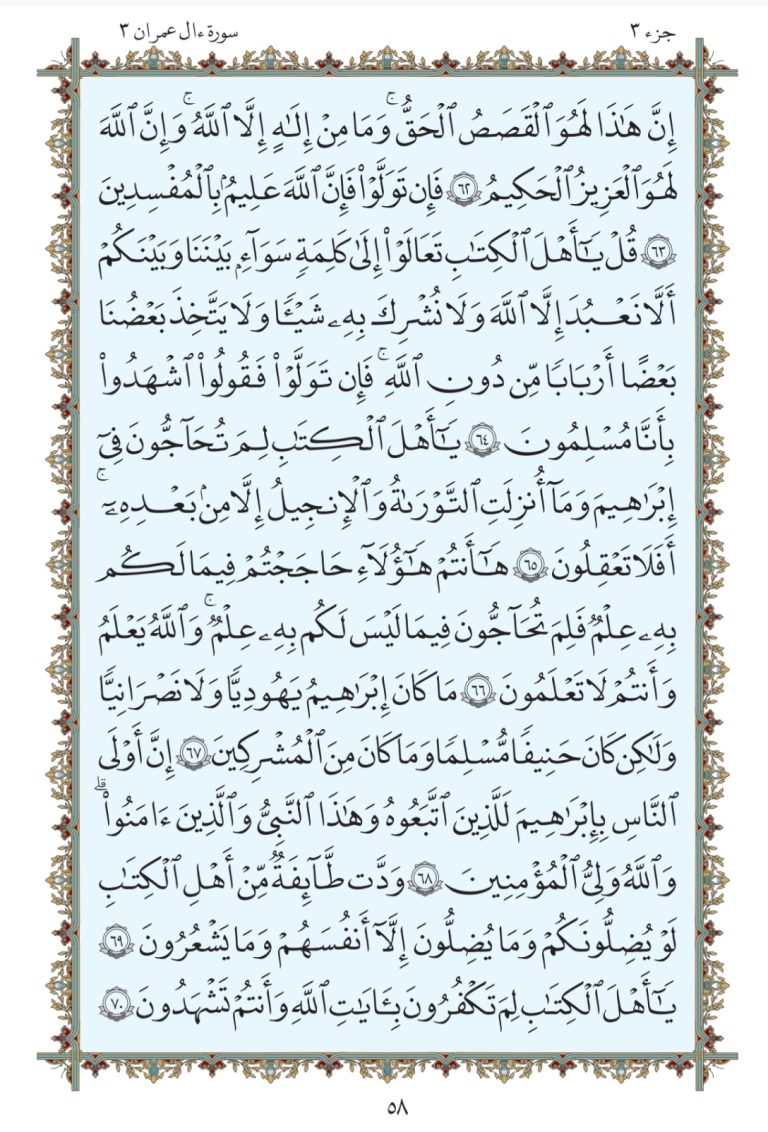 جزء ٣
سورة ءال عمران ٣
إِنَّ هَٰذَا لَهُوَ ٱلْقَصَصُ ٱلْحَقُّ ۚ وَمَا مِنْ إِلَٰهٍ إِلَّا ٱللَّهُ ۚ وَإِنَّ ٱللَّهَ
لَهُوَ ٱلْعَزِيزُ ٱلْحَكِيمُ ٦٢ فَإِن تَوَلَّوْا۟ فَإِنَّ ٱللَّهَ عَلِيمٌۢ بِٱلْمُفْسِدِينَ
٦٣ قُلْ يَٰٓأَهْلَ ٱلْكِتَٰبِ تَعَالَوْا۟ إِلَىٰ كَلِمَةٍ سَوَآءٍۭ بَيْنَنَا وَبَيْنَكُمْ
أَلَّا نَعْبُدَ إِلَّا ٱللَّهَ وَلَا نُشْرِكَ بِهِۦ شَيْـًٔا وَلَا يَتَّخِذَ بَعْضُنَا
بَعْضًا أَرْبَابًا مِّن دُونِ ٱللَّهِ ۚ فَإِن تَوَلَّوْا۟ فَقُولُوا۟ ٱشْهَدُوا۟
بِأَنَّا مُسْلِمُونَ ٦٤ يَٰٓأَهْلَ ٱلْكِتَٰبِ لِمَ تُحَآجُّونَ فِىٓ
إِبْرَٰهِيمَ وَمَآ أُنزِلَتِ ٱلتَّوْرَىٰةُ وَٱلْإِنجِيلُ إِلَّا مِنۢ بَعْدِهِۦٓ ۚ
أَفَلَا تَعْقِلُونَ ٦٥ هَٰٓأَنتُمْ هَٰٓؤُلَآءِ حَٰجَجْتُمْ فِيمَا لَكُم
بِهِۦ عِلْمٌ فَلِمَ تُحَآجُّونَ فِيمَا لَيْسَ لَكُم بِهِۦ عِلْمٌ ۚ وَٱللَّهُ يَعْلَمُ
وَأَنتُمْ لَا تَعْلَمُونَ ٦٦ مَا كَانَ إِبْرَٰهِيمُ يَهُودِيًّا وَلَا نَصْرَانِيًّا
وَلَٰكِن كَانَ حَنِيفًا مُّسْلِمًا وَمَا كَانَ مِنَ ٱلْمُشْرِكِينَ ٦٧ إِنَّ أَوْلَى
ٱلنَّاسِ بِإِبْرَٰهِيمَ لَلَّذِينَ ٱتَّبَعُوهُ وَهَٰذَا ٱلنَّبِىُّ وَٱلَّذِينَ ءَامَنُوا۟ ۗ
وَٱللَّهُ وَلِىُّ ٱلْمُؤْمِنِينَ ٦٨ وَدَّت طَّآئِفَةٌ مِّنْ أَهْلِ ٱلْكِتَٰبِ
لَوْ يُضِلُّونَكُمْ وَمَا يُضِلُّونَ إِلَّآ أَنفُسَهُمْ وَمَا يَشْعُرُونَ ٦٩
يَٰٓأَهْلَ ٱلْكِتَٰبِ لِمَ تَكْفُرُونَ بِـَٔايَٰتِ ٱللَّهِ وَأَنتُمْ تَشْهَدُونَ ٧٠
٥٨